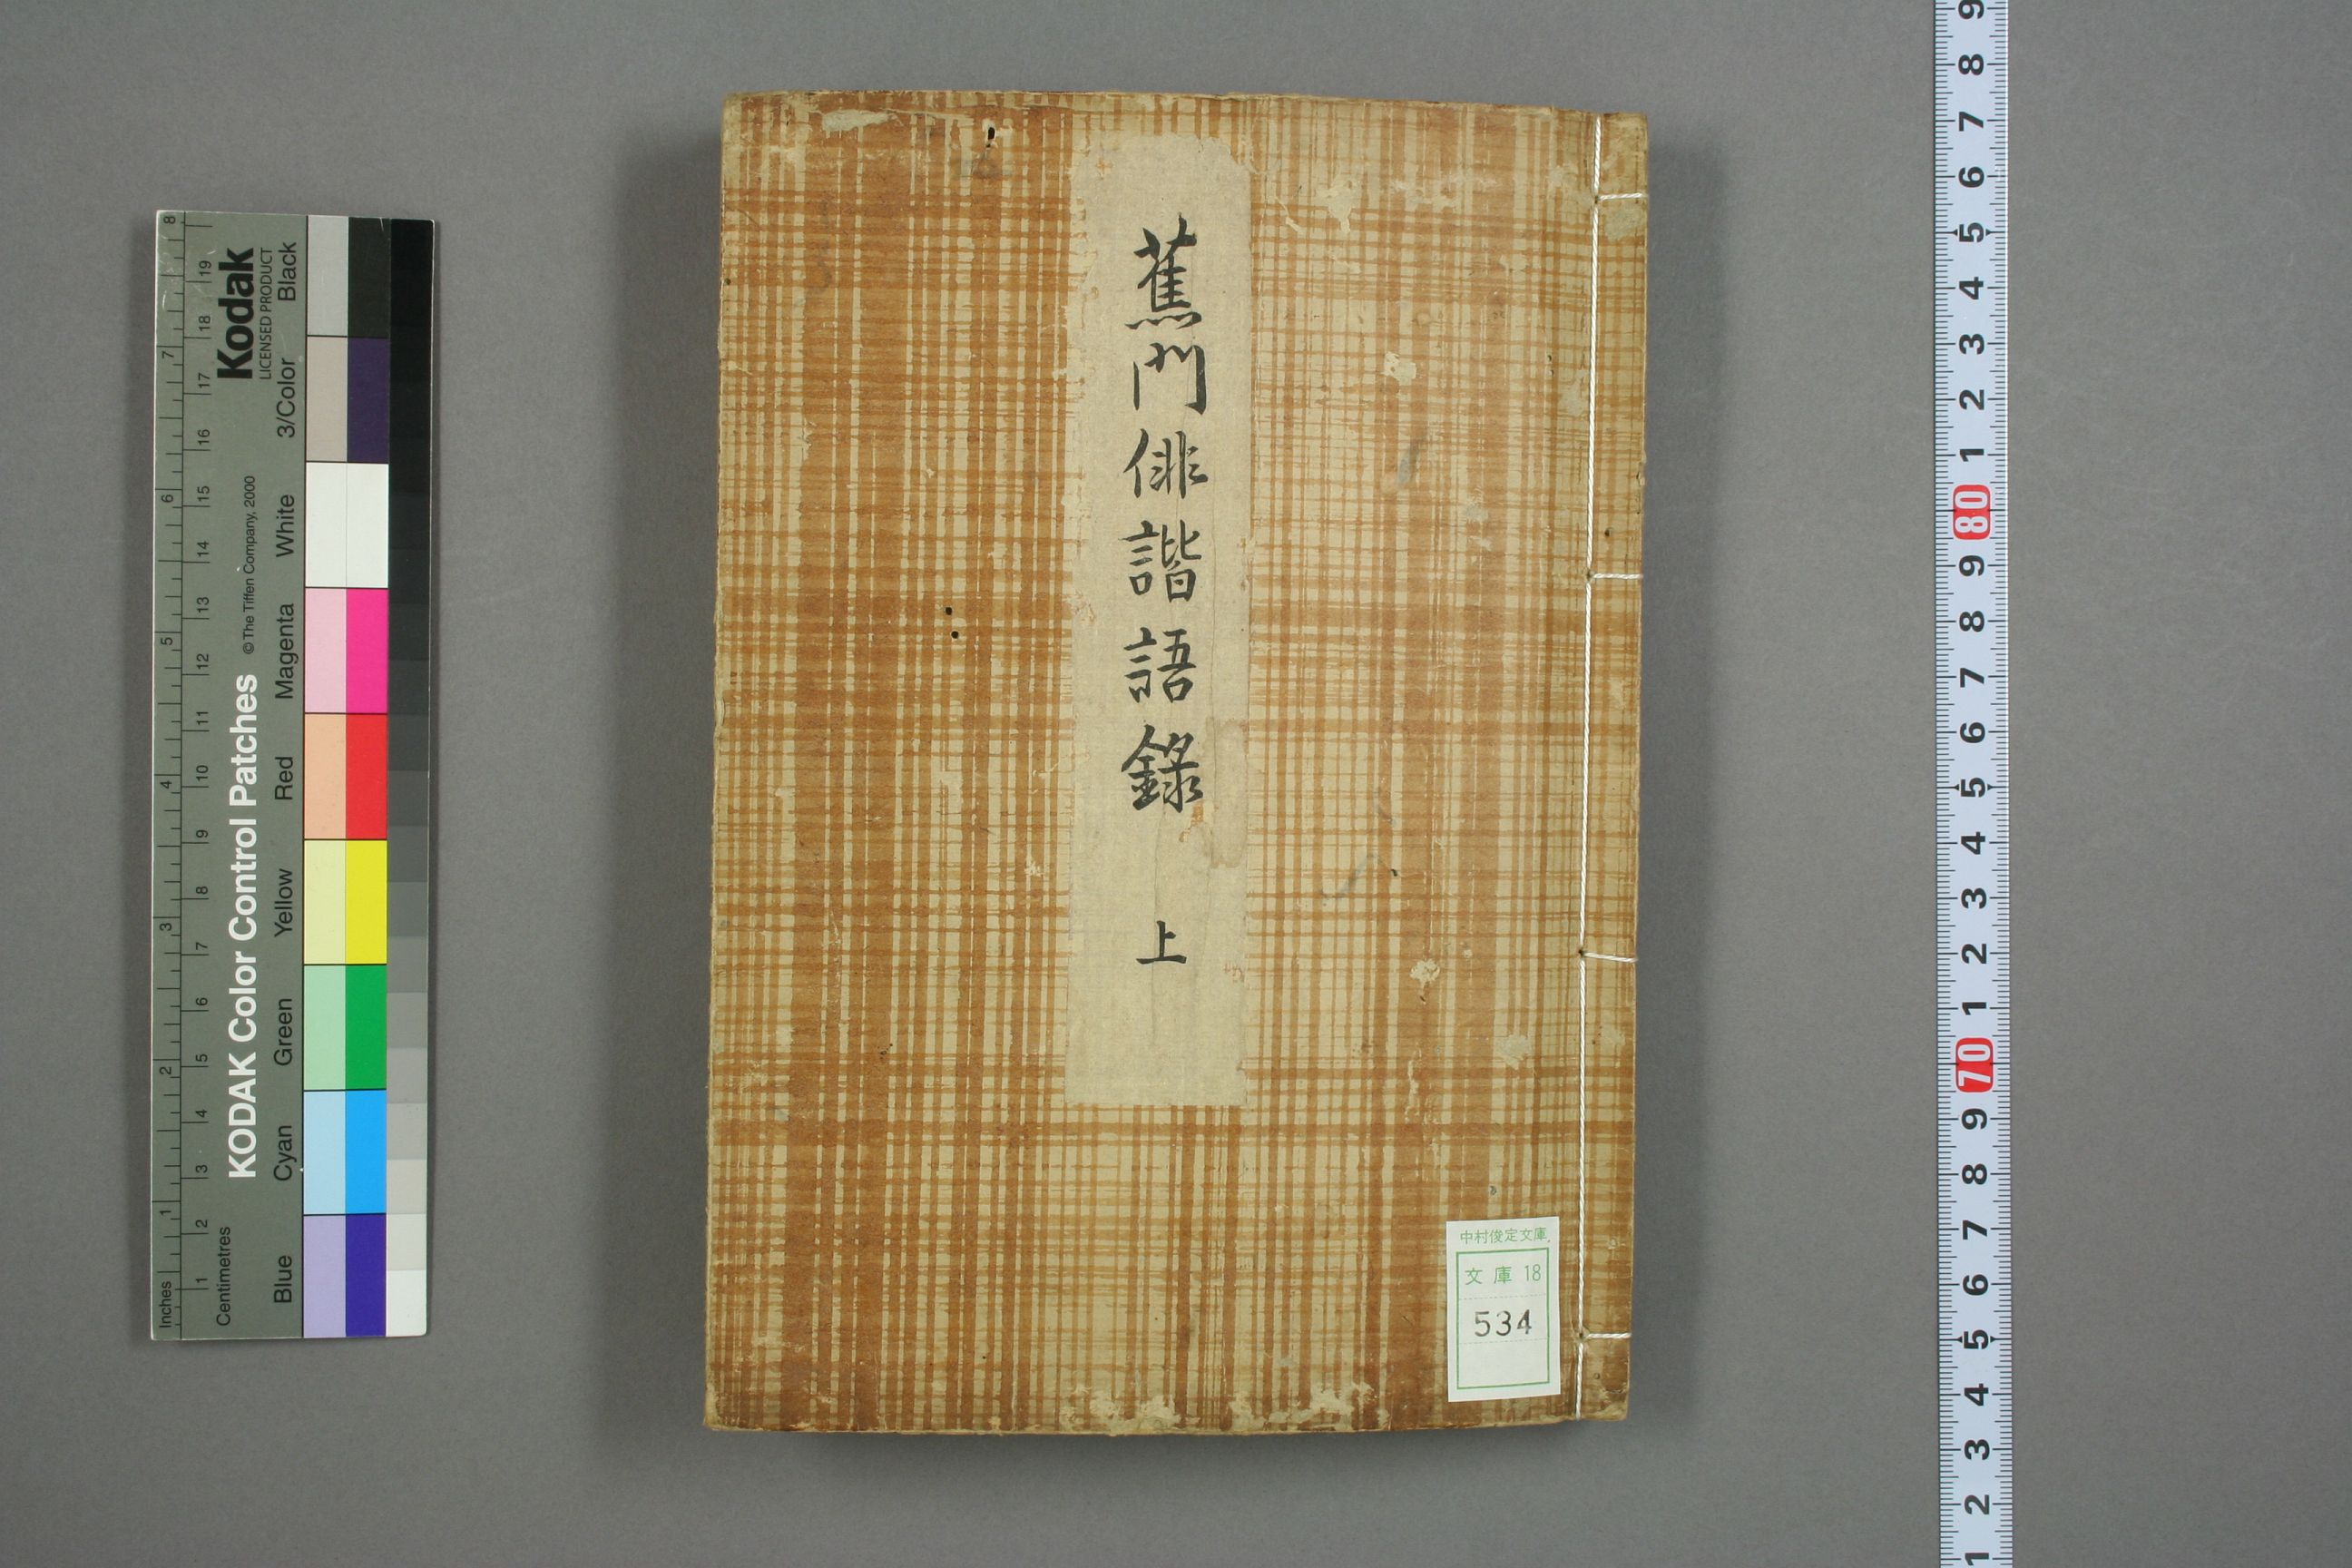 蕉門俳諧語録 上
中村俊定文庫
文庫 18
534
Kodak
LICENSED PRODUCT
KODAK Color Control Patches
© The Tiffen Company, 2000
Blue Cyan Green Yellow Red Magenta White 3/Color Black
Centimetres
1 2 3 4 5 6 7 8 9 10 11 12 13 14 15 16 17 18 19
Inches
1 2 3 4 5 6 7 8
9
8
7
6
5
4
3
2
1
80
9
8
7
6
5
4
3
2
1
70
9
8
7
6
5
4
3
2
1